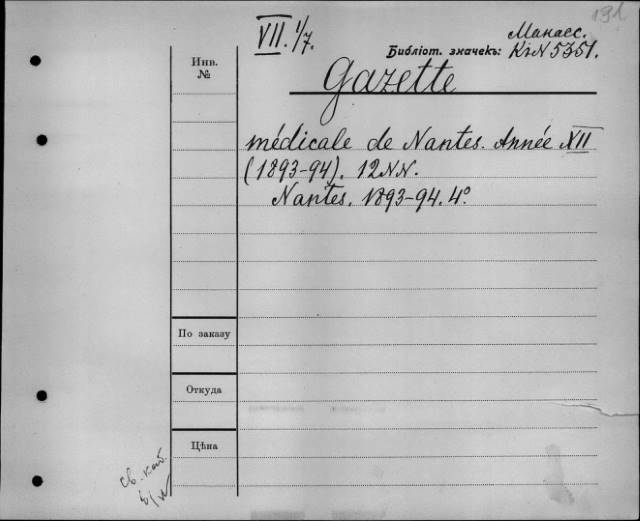 191
VII. 1/7.
Манаес.
Библіот. значекъ: Кг N 5351.
Инв.
№
Gazette
médicale de Nantes. Année XII
(1893-94). 12 NN.
Nantes. 1893-94. 4º
По заказу
Откуда
Цѣна
св. кат.